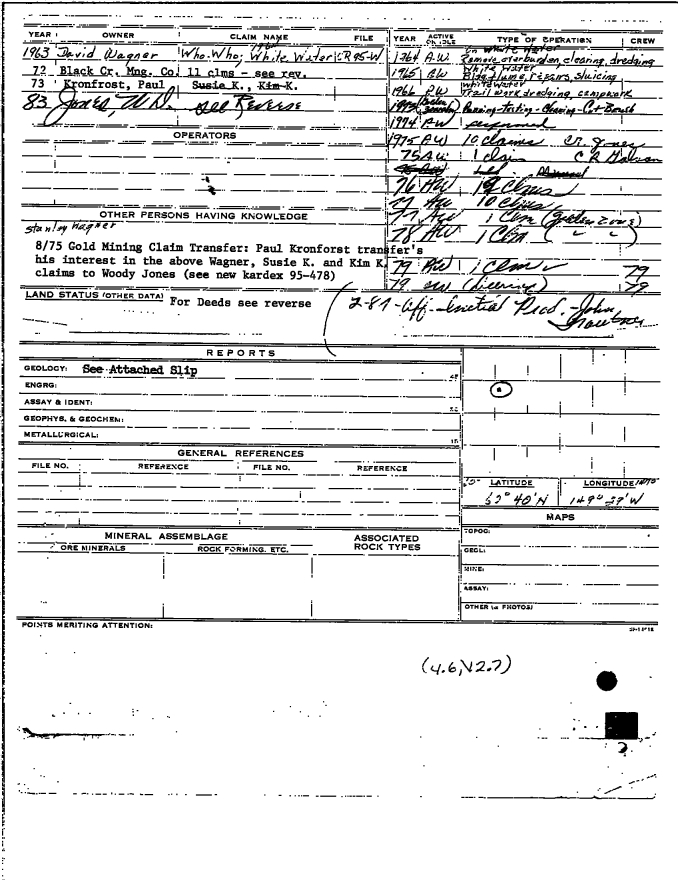 YEAR OWNER CLAIM NAME FILE
1963 David Wagner Who-Who; White Water KR 95-W
1964
72 Black Cr. Mng. Co. 11 clms - see rev.
73 Kronfrost, Paul Susie K., Kim K.
83 Jones, W.D. see Reverse
OPERATORS
OTHER PERSONS HAVING KNOWLEDGE
Stanley Wagner
8/75 Gold Mining Claim Transfer: Paul Kronforst transfer's
his interest in the above Wagner, Susie K. and Kim K.
claims to Woody Jones (see new kardex 95-478)
LAND STATUS (OTHER DATA) For Deeds see reverse
YEAR ACTIVE OR IDLE TYPE OF OPERATION CREW
on White Water
1964 A.W. Remove overburden, clearing, dredging
White Water
1965 AW Bldg flume, repairs, sluicing
White Water
1966 AW Trail work dredging campwork
Panning-Testing-Clearing-Cut Brush
1974 AW
1975 AW 10 claims
75 AW 1 claim
76 AW
77 AW 10 Clms
77 AW 1 Clm (Golden Zone)
78 AW 1 Clm ( " " )
79 AW 1 Clm 79
79 79
2-87-Aff.-Initial Prod.-John
REPORTS
GEOLOGY: See Attached Slip
ENGRG:
ASSAY & IDENT:
GEOPHYS. & GEOCHEM:
METALLURGICAL:
GENERAL REFERENCES
FILE NO. REFERENCE FILE NO. REFERENCE
LATITUDE LONGITUDE
40'N 149° 37'W
MAPS
TOPOG:
GEOL:
MINE:
ASSAY:
OTHER (& PHOTOS)
MINERAL ASSEMBLAGE
ORE MINERALS ROCK FORMING, ETC.
ASSOCIATED
ROCK TYPES
POINTS MERITING ATTENTION:
(4.6, 12.7)